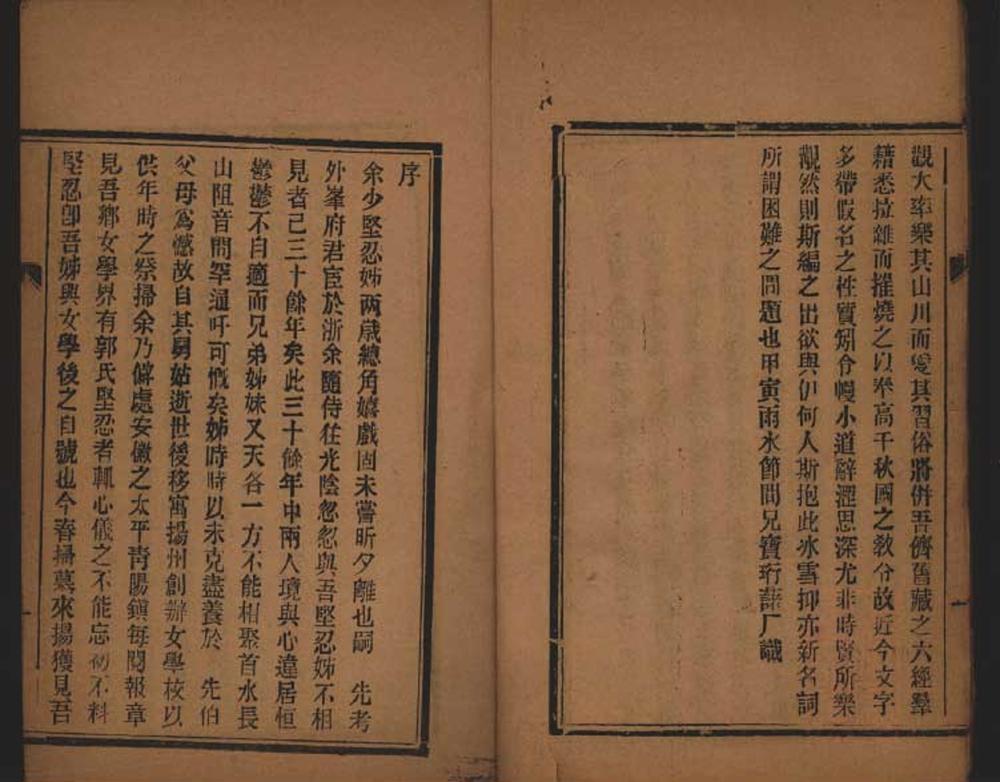 觀大率樂其山川而愛其習俗將併吾儕舊藏之六經羣
籍悉拉雜而摧燒之以奉高千秋國之敎令故近今文字
多帶假名之性質矧令嫚小道辭澀思深尤非時賢所樂
觀然則斯編之出欲與伊何人斯抱此冰雪抑亦新名詞
所謂困難之問題也甲寅雨水節間兄寶珩蘂厂識
序
余少堅忍姊兩歲總角嬉戲固未嘗昕夕離也嗣 先考
外峯府君宦於浙余隨侍往光陰忽忽與吾堅忍姊不相
見者已三十餘年矣此三十餘年中兩人境與心違居恒
鬱鬱不自適而兄弟姊妹又天各一方不能相聚首水長
山阻音問罕通吁可慨矣姊時時以未克盡養於 先伯
父母爲憾故自其舅姑逝世後移寓揚州創辦女學校以
供年時之祭掃余乃僻處安徽之太平靑陽鎭每閱報章
見吾鄉女學界有郭氏堅忍者輒心儀之不能忘初不料
堅忍卽吾姊興女學後之自號也今春掃墓來揚獲見吾